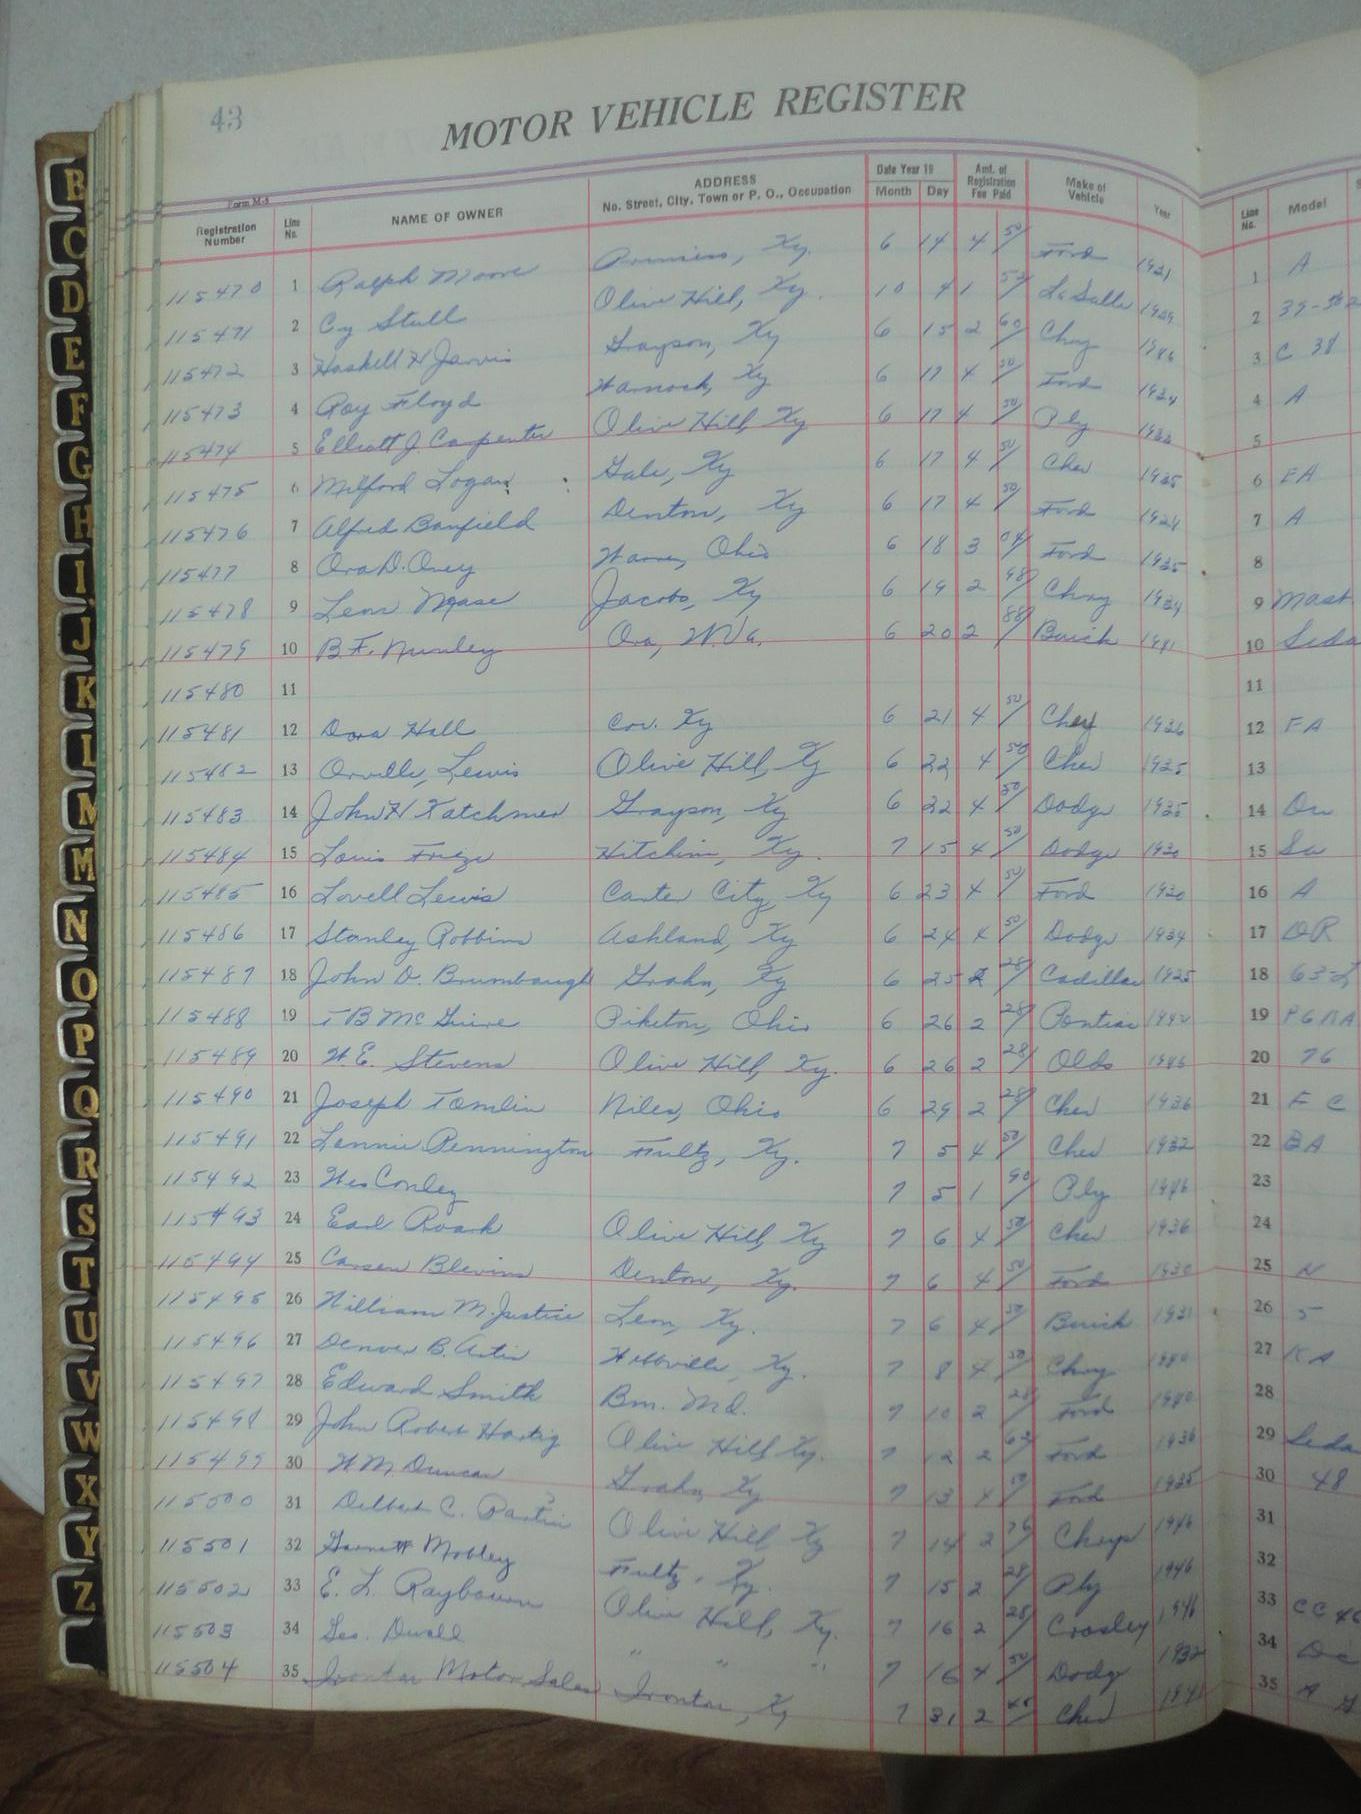 43
MOTOR VEHICLE REGISTER
Form M-8
Registration Number Line No. NAME OF OWNER ADDRESS No. Street, City, Town or P. O., Occupation Date Year 19 Month Day Amt. of Registration Fee Paid Make of Vehicle Year Line No. Model
115470 1 Ralph Moore Ky. 6 14 4 50/ Ford 1931 1 A
115471 2 Cy Stull Olive Hill, Ky. 10 4 1 52/ LaSalle 1939 2
115472 3 Haskell H Jarvis Grayson, Ky 6 15 2 60/ Chry 3 C 38
115473 4 Roy Floyd Warnock, Ky 6 17 4 50/ Ford 4 A
115474 5 Elliott J. Carpenter Olive Hill, Ky 6 17 4 50/ Ply 5
115475 6 Milford Logan Gale, Ky 6 17 4 50/ Chev 1935 6 EA
115476 7 Alfred Banfield Denton, Ky 6 17 4 50/ Ford 7 A
115477 8 Ora D. Oney Ohio 6 18 3 04/ Ford 1935 8
115478 9 Leon Jacobs, Ky 6 19 2 98/ Chry 1934 9 Mast
115479 10 B.F. Nunley Ora, W.Va. 6 20 2 88/ Buick 1941 10 Seda
115480 11 11
115481 12 Dora Hall Cov. Ky 6 21 4 50/ Chev 1936 12 FA
115482 13 Orville, Lewis Olive Hill, Ky 6 22 4 50/ Chev 1935 13
115483 14 John H Katchmer Grayson, Ky 6 22 4 50/ Dodge 1935 14 Du
115484 15 Louis Hitchins, Ky. 7 15 4 50/ Dodge 1930 15
115485 16 Lovell Lewis Carter City, Ky 6 23 4 50/ Ford 1930 16 A
115486 17 Stanley Robbins Ashland, Ky 6 24 4 50/ Dodge 1934 17 DR
115487 18 John D. Brumbaugh Grahn, Ky 6 25 2 28/ Cadillac 1925 18 63-
115488 19 T B McGuire Piketon, Ohio 6 26 2 28/ Pontiac 19
115489 20 W.E. Stevens Olive Hill, Ky. 6 26 2 28/ Olds 1946 20 76
115490 21 Joseph Tomlin Niles, Ohio 6 29 2 28/ Chev 1936 21 F C
115491 22 Lennie Pennington Fultz, Ky. 7 5 4 50/ Chev 1932 22 BA
115492 23 Wes Conley 7 5 1 90/ Ply 1946 23
115493 24 Earl Roark Olive Hill, Ky 7 6 4 50/ Chev 1936 24
115494 25 Carsen Blevins Denton, Ky. 7 6 4 50/ Ford 1930 25
115495 26 William M. Justice Leon, Ky. 7 6 4 50/ Buick 1931 26 5
115496 27 Denver B. Webbville, Ky. 7 8 4 50/ Chry 27 KA
115497 28 Edward Smith Bm. Md. 7 10 2 28/ Ford 1940 28
115498 29 John Robert Hartig Olive Hill, Ky. 7 12 2 62/ Ford 1936 29 Seda
115499 30 W M Duncan Grahn, Ky 7 13 4 50/ Ford 1935 30 48
115500 31 Delbert C. Partin ? Olive Hill Ky 7 14 2 76/ 1946 31
115501 32 Garnett Mobley Fultz, Ky. 7 15 2 28/ Ply 1946 32
115502 33 E. L. Raybourn Olive Hill, Ky. 7 16 2 28/ Crosley 1946 33
115503 34 Geo. Duvall " " " 7 16 4 50/ Dodge 1932 34
115504 35 Ironton Motor Sales Ironton, Ky 7 31 2 45/ Chev 1941 35
B
C
D
E
F
G
H
I
J
K
L
M
M
N
O
P
Q
R
S
T
U
V
W
X
Y
Z